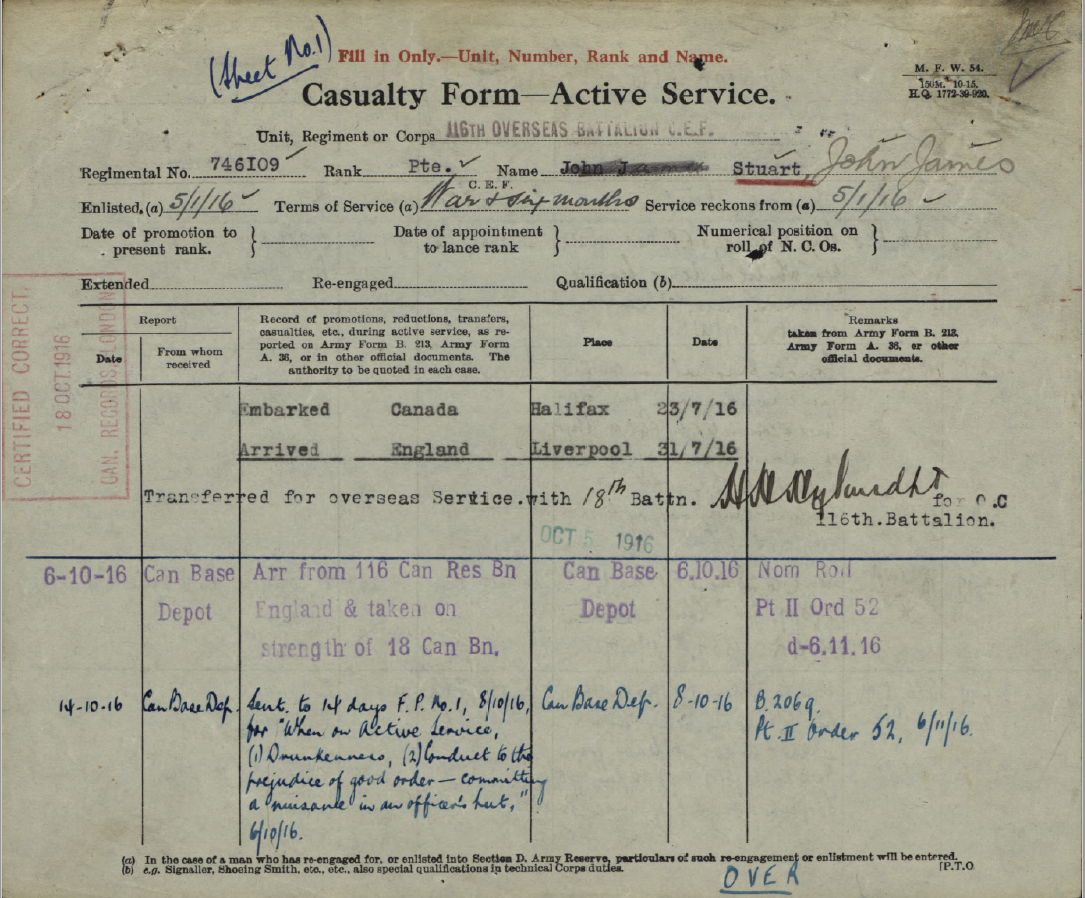 (Sheet No. 1)
Fill in Only.—Unit, Number, Rank and Name.
M. F. W. 54.
150M. 10-15.
H.Q. 1772-39-920.
Casualty Form—Active Service.
Unit, Regiment or Corps 116TH OVERSEAS BATTALION C.E.F.
Regimental No. 746109 Rank Pte. Name John James Stuart, John James
C. E. F.
Enlisted (a) 5/1/16 Terms of Service (a) War & six months Service reckons from (a) 5/1/16
Date of promotion to present rank. } Date of appointment to lance rank } Numerical position on roll of N. C. Os. }
Extended Re-engaged Qualification (b)
CERTIFIED CORRECT.
18 OCT. 1916
CAN. RECORDS, LONDON
Report
Date
From whom received
Record of promotions, reductions, transfers,
casualties, etc., during active service, as re-
ported on Army Form B. 213, Army Form
A. 36, or in other official documents. The
authority to be quoted in each case.
Place
Date
Remarks
taken from Army Form B. 213,
Army Form A. 36, or other
official documents.
Embarked Canada Halifax 23/7/16
Arrived England Liverpool 31/7/16
Transferred for overseas Service.with 18th Battn. for O.C
116th.Battalion.
OCT 5 1916
6-10-16 Can Base Arr from 116 Can Res Bn Can Base 6.10.16 Nom Roll
Depot England & taken on Depot Pt II Ord 52
strength of 18 Can Bn. d-6.11.16
14-10-16 Can Base Dep. Sent. to 14 days F.P. No.1, 8/10/16, Can Base Dep. 8-10-16 B.2069.
for "When on Active Service, Pt. II Order 52, 6/11/16.
(1) Drunkenness, (2) Conduct to the
prejudice of good order — committing
a nuisance in an officer's hut,"
6/10/16.
(a) In the case of a man who has re-engaged for, or enlisted into Section D. Army Reserve, particulars of such re-engagement or enlistment will be entered.
(b) e.g. Signaller, Shoeing Smith, etc., etc., also special qualifications in technical Corps duties. [P.T.O
OVER